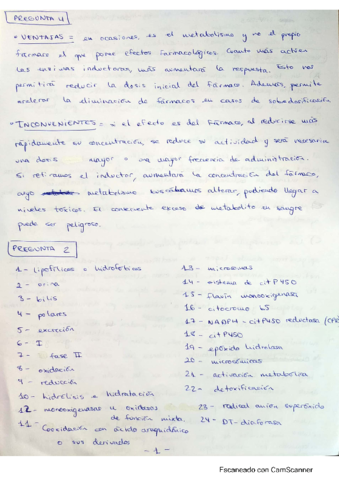 PREGUNTA 4
* VENTAJAS = en ocasiones, es el metabolismo y no el propio
fármaco el que posee efectos farmacológicos. Cuanto más activen
las enzimas inductoras, más aumentará la respuesta. Esto nos
permitirá reducir la dosis inicial del fármaco. Además, permite
acelerar la eliminación de fármacos en casos de sobredosificación
* INCONVENIENTES = si el efecto es del fármaco, al reducirse más
rápidamente su concentración, se reduce su actividad y será necesaria
una dosis mayor o una mayor frecuencia de administración.
Si retiramos el inductor, aumentará la concentración del fármaco,
cuyo metabolismo buscábamos alterar, pudiendo llegar a
niveles tóxicos. El consecuente exceso de metabolito en sangre
puede ser peligroso.
PREGUNTA 2
1 - lipofílicos o hidrofóbicos
2 - orina
3 - bilis
4 - polares
5 - excreción
6 - I
7 - fase II
8 - oxidación
9 - reducción
10 - hidrólisis o hidratación
12 - monooxigenasas u oxidasas
de función mixta.
11 - Cooxidación con ácido araquidónico
o sus derivados
13 - microsomas
14 - sistema de cit P450
15 - flavín monooxigenasa
16 - citocromo b5
17 - NADPH - cit P450 reductasa
18 - cit P450
19 - epóxido hidrolasa
20 - microsómicas
21 - activación metabólica
22 - detoxificación
23 - radical anión superóxido
24 - DT-diaforasa
- 1 -
Escaneado con CamScanner